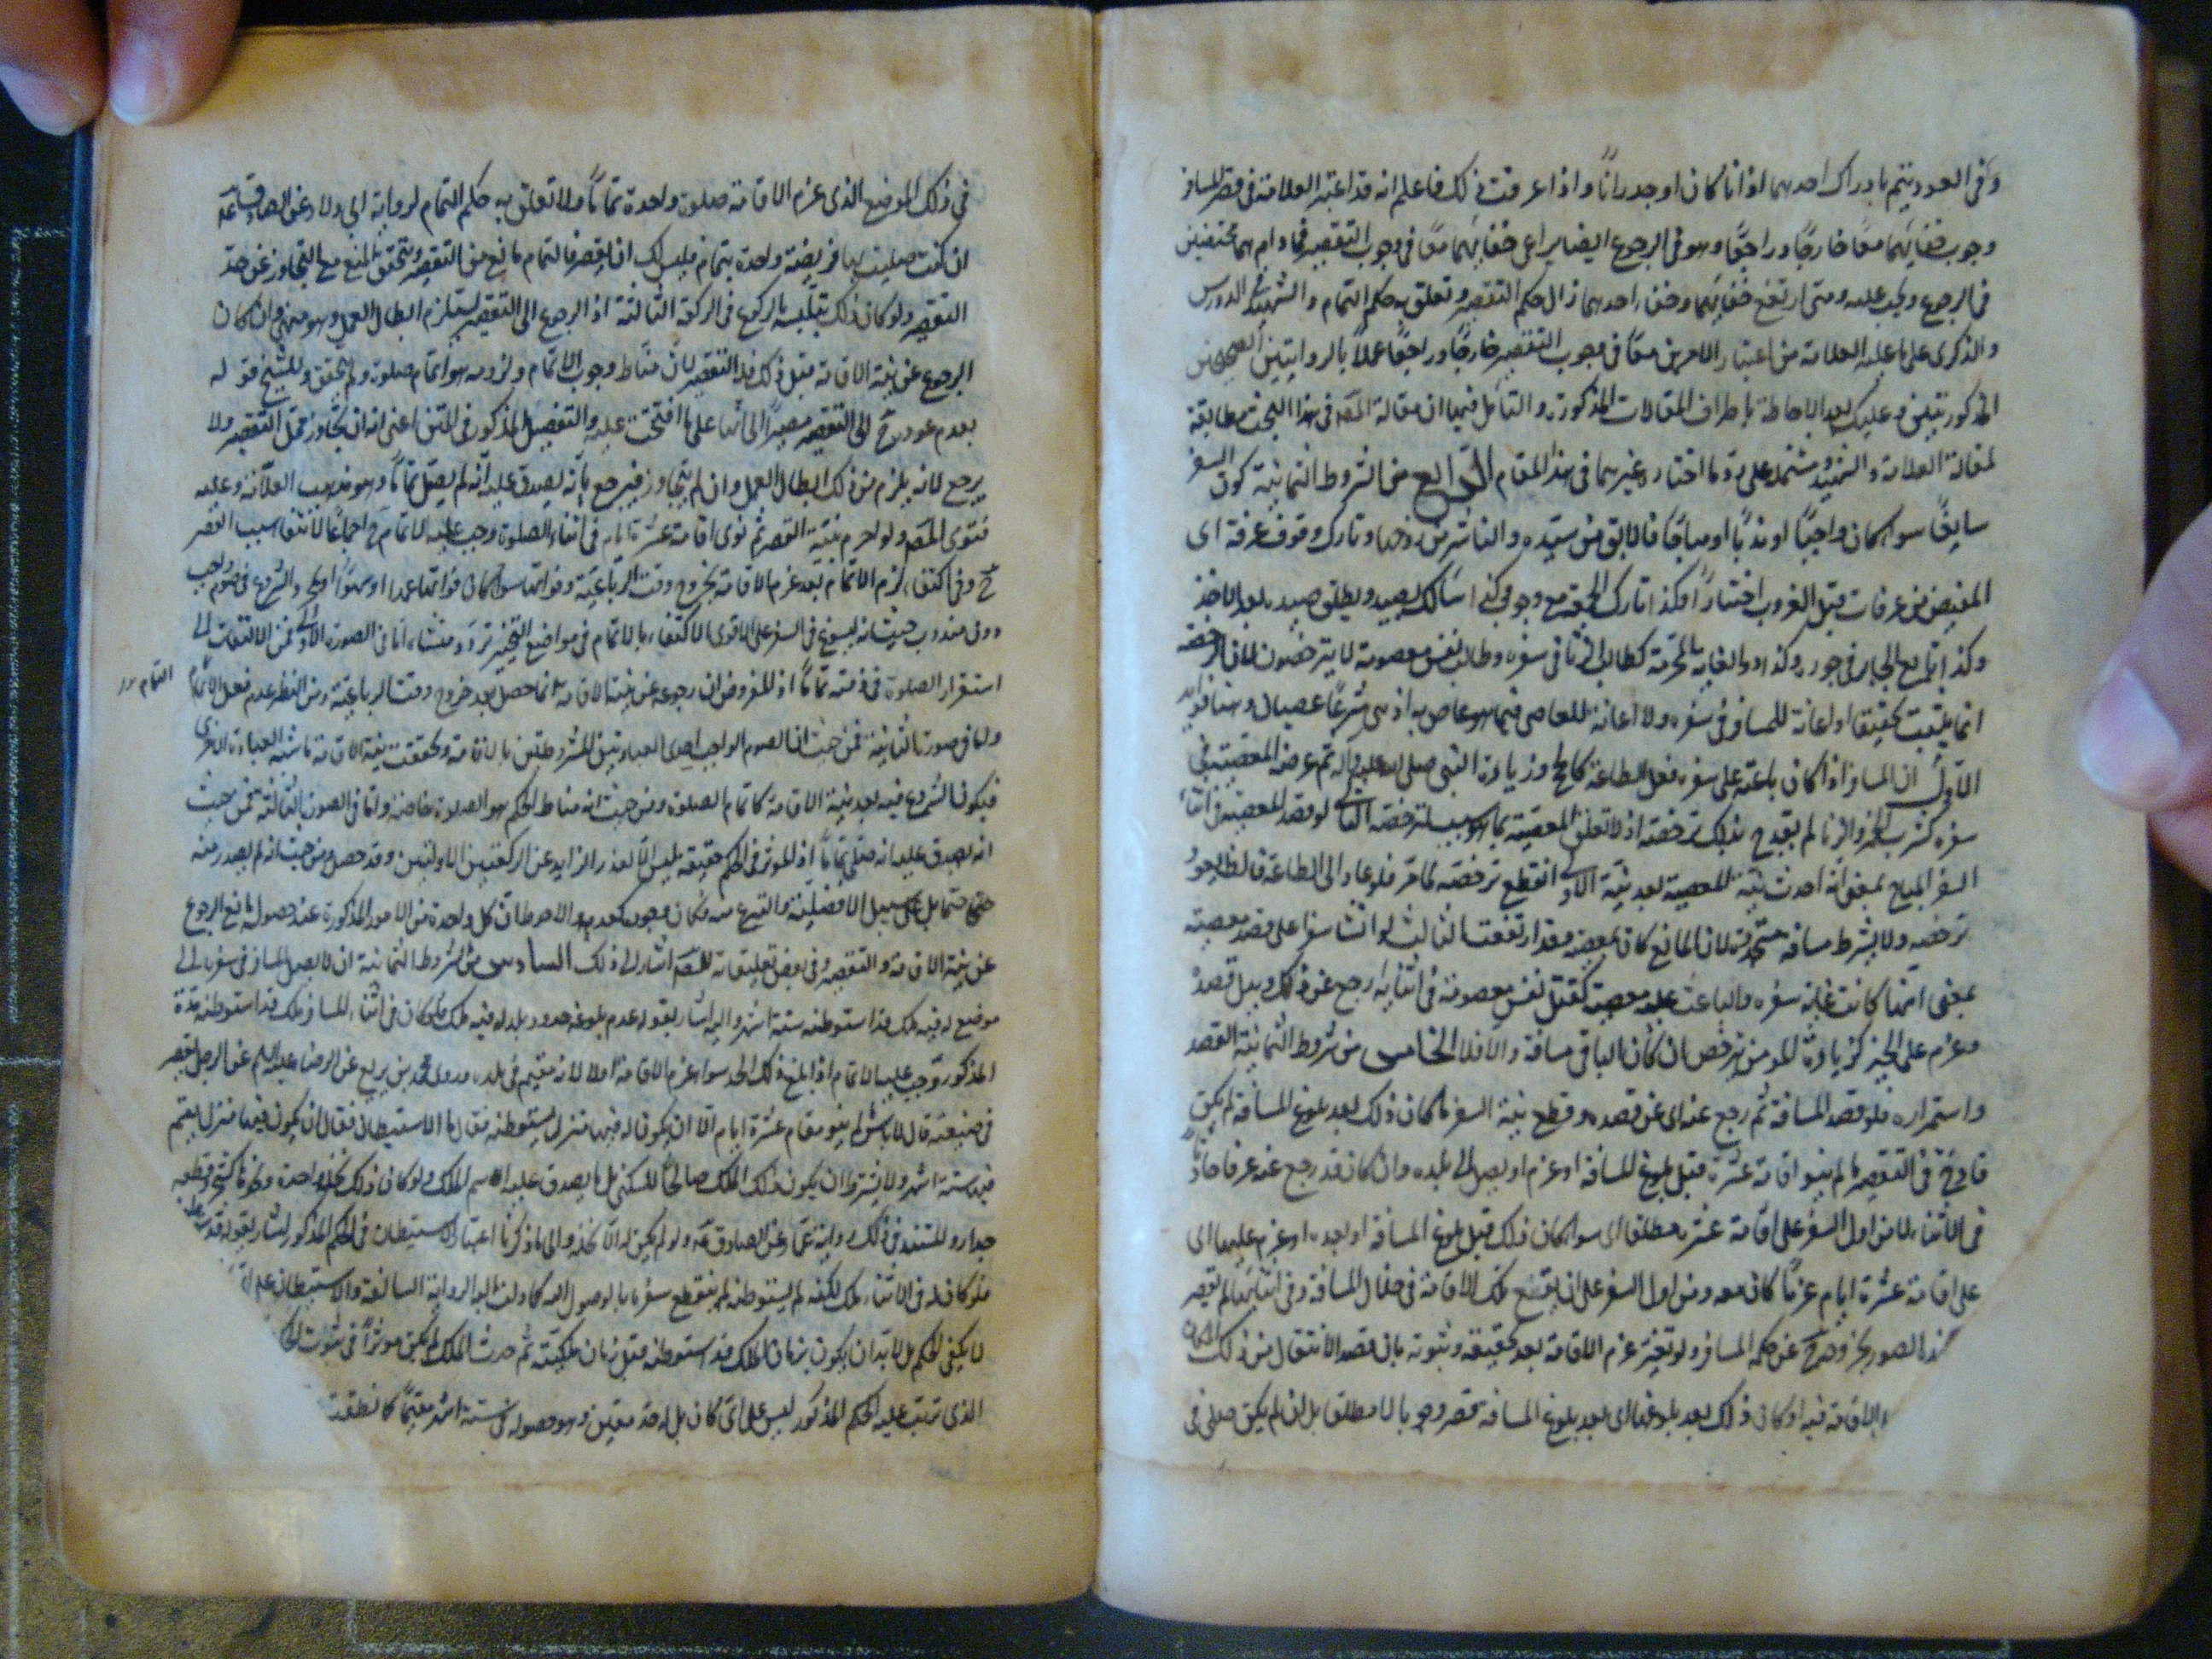 وفي العود يتم بادراك احدهما اذانا كان او جدرانا واذا عرفت ذلك فاعلم انه قد اعتبر العلامة في قصر المسافر
وجوب خفائهما معا خارجا وراجعا وهو في الرجوع ايضا يراعى خفائهما معا في وجوب التقصير فما دام هما مختفيين
في الرجوع وجب عليه ومتى ارتفع خفائهما وخفى احدهما زال حكم التقصير وتعلق به حكم التمام والشهيد في الدروس
والذكرى على ما عليه العلامة من اعتبار الامرين معا في وجوب التقصير خارجا وراجعا عملا بالروايتين الصحيحتين
المذكورتين وعليك بعد الاحاطة باطراف المقالات المذكورة والتامل فيها ان مقالة المصنف في هذا البحث مطابقة
لمقالة العلامة والشهيد ومشتملة على رد ما اختاره غيرهما في هذا المقام الرابع من الشروط الثمانية كون السفر
سايغا سواء كان واجبا او ندبا او مباحا فالابق من سيده والناشز من زوجها وتارك وقوف عرفة اى
المفيض من عرفات قبل الغروب اختيارا وكذا تارك الجمعة مع وجوبها وكذا سالك بصيد ويطلق صيده بعد الاخذ
وكذا تابع الجاير في جوره وكذا ذو الغاية المحرمة كطالب الزنا في سفره وطالب نفس معصومة لا يترخصون لان الرخصة
انما يثبت تخفيفا واعانة للمسافر في سفره ولا اعانة للعاصى فيما هو عاص به اذ هي شرعا عصيان وهنا فوايد
الاولى ان المسافر اذا كان باعثه على سفره فعل الطاعة كالحج وزيارة النبى صلى الله عليه واله ثم عرض المعصية في
سفره كشرب الخمر والزنا لم يقدح ذلك ترخصه اذ لا تعلق للمعصية بما هو سبب لترخصه الثانية لو قصد المعصية في اثناء
السفر المباح بمعنى انه احدث نية المعصية بعد نية الاولى انقطع ترخصه لما مر فلو عاد الى الطاعة فالظاهر عود
ترخصه ولا يشترط مسافة متجددة لان المانع كان المعصية وقد ارتفعت الثالث لو انشا سفرا على قصد معصية
بمعنى انها كانت غاية سفره والباعث عليه معصية كقتل نفس معصومة في اثنائه رجع عن ذلك وبدل قصده
وعزم على الخير كزيارة المومن ترخص ان كان الباقى مسافة والا فلا الخامس من شروط الثمانية القصد
واستمراره فلو قصد المسافة ثم رجع عنه اى عن قصده وقطع نية السفر فان كان ذلك بعد بلوغ المسافة لم يكن
قادح في التقصير ما لم ينو اقامة عشرة قبل بلوغ المسافة او عزم او يصل الى بلده وان كان قد رجع عنه عزما حادثا
في الاثناء لا من اول السفر على اقامة عشرة مطلقا اى سواء كان ذلك قبل بلوغ المسافة او بعده او عزم عليها اى
على اقامة عشرة ايام عزما كان معه ومن اول السفر على ان يقع تلك الاقامة في خلال المسافة وفي اثنائها لم يقصر
هذا الصور بخروجه عن حكم المسافر ولو تغير عزم الاقامة بعد تحقيقه وثبوته بان قصد الانتقال من ذلك
الاقامة فيه او كان ذلك بعد بلوغها اى بعد بلوغ المسافة قصر وجوبا لا مطلقا بل ان لم يكن صلى في
في ذلك الموضع الذى عزم الاقامة صلوة واحدة تماما ولا تعلق به حكم التمام لرواية ابى ولاد عن الصادق عه
ان كنت صليت بها فريضة واحدة بتمام فليس لك ان تقصر فالتمام مانع من التقصير ويتحقق المنع مع التجاوز عن حد
التقصير ولو كان ذلك بتلبسه بالركوع في الركعة الثالثة اذ الرجوع الى التقصير يستلزم ابطال العمل وهو منهى وان كان
الرجوع عن نية الاقامة قبل ذلك فله التقصير لان مناط وجوب الاتمام ولزومه هو اتمام صلوة ولم يتحقق وللشيخ قول
بعدم عوده ح الى التقصير مصيرا الى انها على ما افتتحت عليه والتفصيل المذكور في المتن اعنى انه ان تجاوز محل التقصير ولا
يرجع لانه يلزم من ذلك ابطال العمل وان لم يتجاوز فيرجع بانه يصدق عليه انه لم يصل تماما وهو مذهب العلامة وعليه
فتوى المصنف ولو احرم بنية القصر ثم نوى اقامة عشرة ايام في اثناء الصلوة وجب عليه الاتمام ح اجماعا لانتفاء سبب القصر
ح وفي اكتفاء لزم الاتمام بعد عزم الاقامة بخروج وقت الرباعية وفواتها سواء كان فواتها عمدا او سهوا او بحر والشروع في صوم واجب
دون مندوب حيث انه يسوغ في السفر على الاقوى الاكتفاء بالاتمام في مواضع التخيير تردد ومنشاه اما في الصورة الاولى فمن الالتفات الى
استقرار الصلوة في ذمته تماما اذ المفروض ان رجوعه عن نية الاقامة انما حصل بعد خروج وقت الرباعية ومن النظر عدم فعل الاتمام
التمام
واما في صورة الثانية فمن حيث ان الصوم الواجب احدى العبادتين المشروطتين بالاقامة وتحققت بنية الاقامة ماشبه العبادة الاخرى
فيكون الشروع فيه بعد نية الاقامة كاتمام الصلوة ومن حيث انه مناط الحكم هو الصلوة خاصة واما في الصورة الثالثة فمن حيث
انه يصدق عليه انه صلى تماما اذ المؤثر في الحكم حقيقة ليس الا العذر الزايد عن الركعتين الاوليين وقد حصل ومن حيث انه لم يصدر منه
حتما بل على سبيل الافضلية والتبرع منه وكان وجوده كعدمه والاحوط ان كل واحدة من الامور المذكورة عند حصوله مانع الرجوع
عن نية الاقامة والتقصير وفي بعض تعليقاته للمصنف اشار الى ذلك السادس من الشروط الثمانية ان لا يصل المسافر في سفره الى
موضع له فيه ملك قد استوطنه ستة اشهر واليه اشار بقوله عدم بلوغه حدود بلد له فيه ملك فلو كان في اثناء المسافر ملك قد استوطنه مدة
المذكورة وجب عليه الاتمام اذا بلغ ذلك الحد سواء عزم الاقامة ام لا لانه مقيم في بلده وروى محمد بن بزيع عن الرضا عليه السلم عن الرجل يقصر
في ضيعته قال لا باس ما لم ينو مقام عشرة ايام الا ان يكون له فيها منزل يستوطنه فقال ما الاستيطان فقال ان يكون فيها منزل يقيم
فيه ستة اشهر ولا يشترط ان يكون ذلك الملك صالحا للسكنى بل ما يصدق عليه اسم الملك ولو كان ذلك نخلة واحدة
جدار والمستند في ذلك رواية عمار عن الصادق عه ولو لم يكن له الا نخلة والى ما ذكرنا اعتبار الاستيطان في الحكم المذكور اشار بقوله قد
فلو كان له في الاثناء ملك لكنه لم يستوطنه لم ينقطع سفره بالوصول اليه كما دلت عليه الرواية السالفة والاستيطان
لا يكفى الحكم بل لا بد ان يكون بزمان الملك فلو استوطنه قبل زمان ملكيته ثم حدث الملك لم يكن موثرا في ثبوت
الذى ترتب عليه الحكم المذكور ليس على اى كان بل له حد معين وهو حصوله في ستة اشهر مقيما كما نطقت